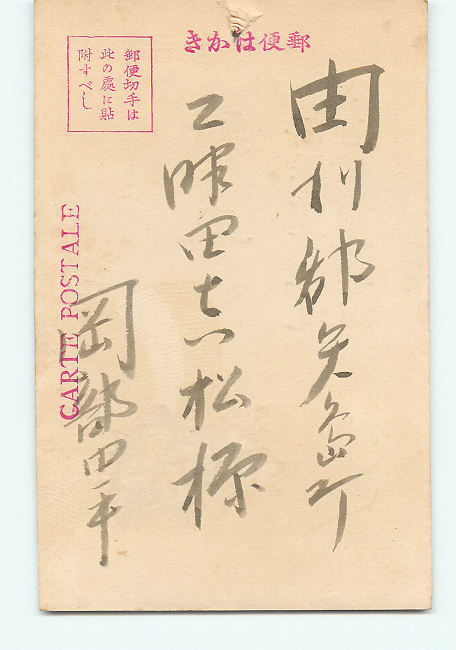 きかは便郵
郵便切手は
此の處に貼
附すべし
CARTE POSTALE
由利郡矢島町
松原
岡部四平